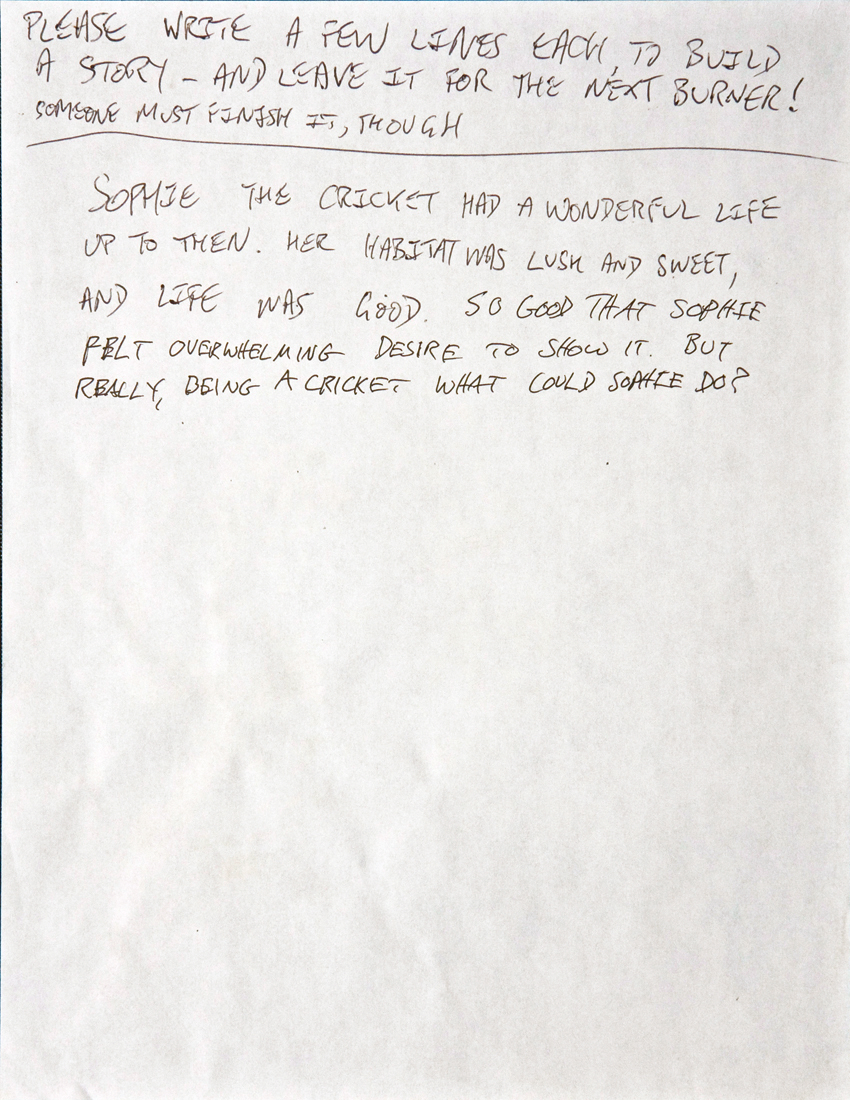 PLEASE WRITE A FEW LINES EACH, TO BUILD
A STORY - AND LEAVE IT FOR THE NEXT BURNER!
SOMEONE MUST FINISH IT, THOUGH
SOPHIE THE CRICKET HAD A WONDERFUL LIFE
UP TO THEN. HER HABITAT WAS LUSH AND SWEET,
AND LIFE WAS GOOD. SO GOOD THAT SOPHIE
FELT OVERWHELMING DESIRE TO SHOW IT. BUT
REALLY, BEING A CRICKET WHAT COULD SOPHIE DO?